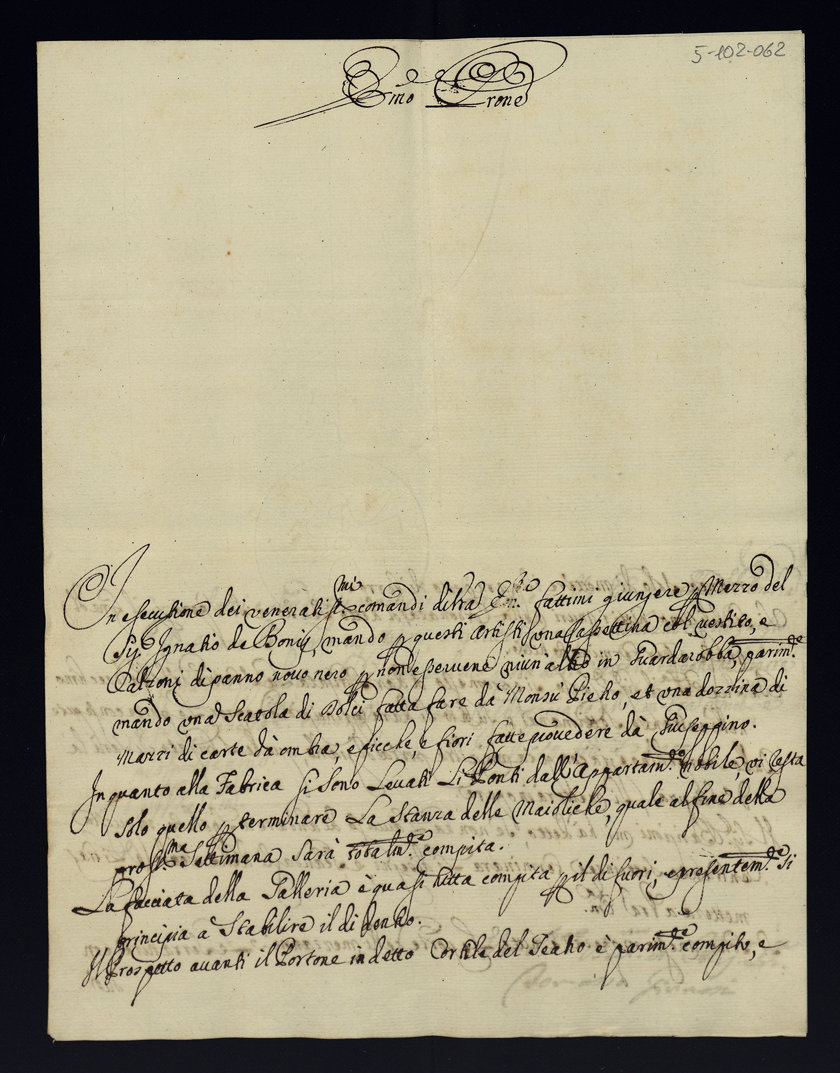 5-102-062
Emo Prone
In esecuzione dei veneratiss.mi comandi di Vra Em.za fattimi giungere p mezzo del
Sig. Ignatio de Bonis, mando p questi Artisti una Cassettina col vestito, e
Calzoni di panno novo nero p non esservene niun'altro in Guardarobba, parim.te
mando una Scatola di Dolci fatta fare da Monsù Pietro, et una dozzina di
Mazzi di carte da ombra, e picche, e fiori fatte provedere dà Giuseppino.
In quanto alla Fabrica si sono Levati Li Ponti dall'Appartam.to nobile, vi resta
solo quello p terminare La Stanza delle Maioliche, quale al fine della
pross.ma Settimana Sarà totalm.te compita.
La facciata della Galleria è quasi tutta compita p il di fuori, e presentem.te si
principia a Stabilire il di dentro.
Il Prospetto avanti il Portone in detto Cortile del Teatro è parim.te compito, e